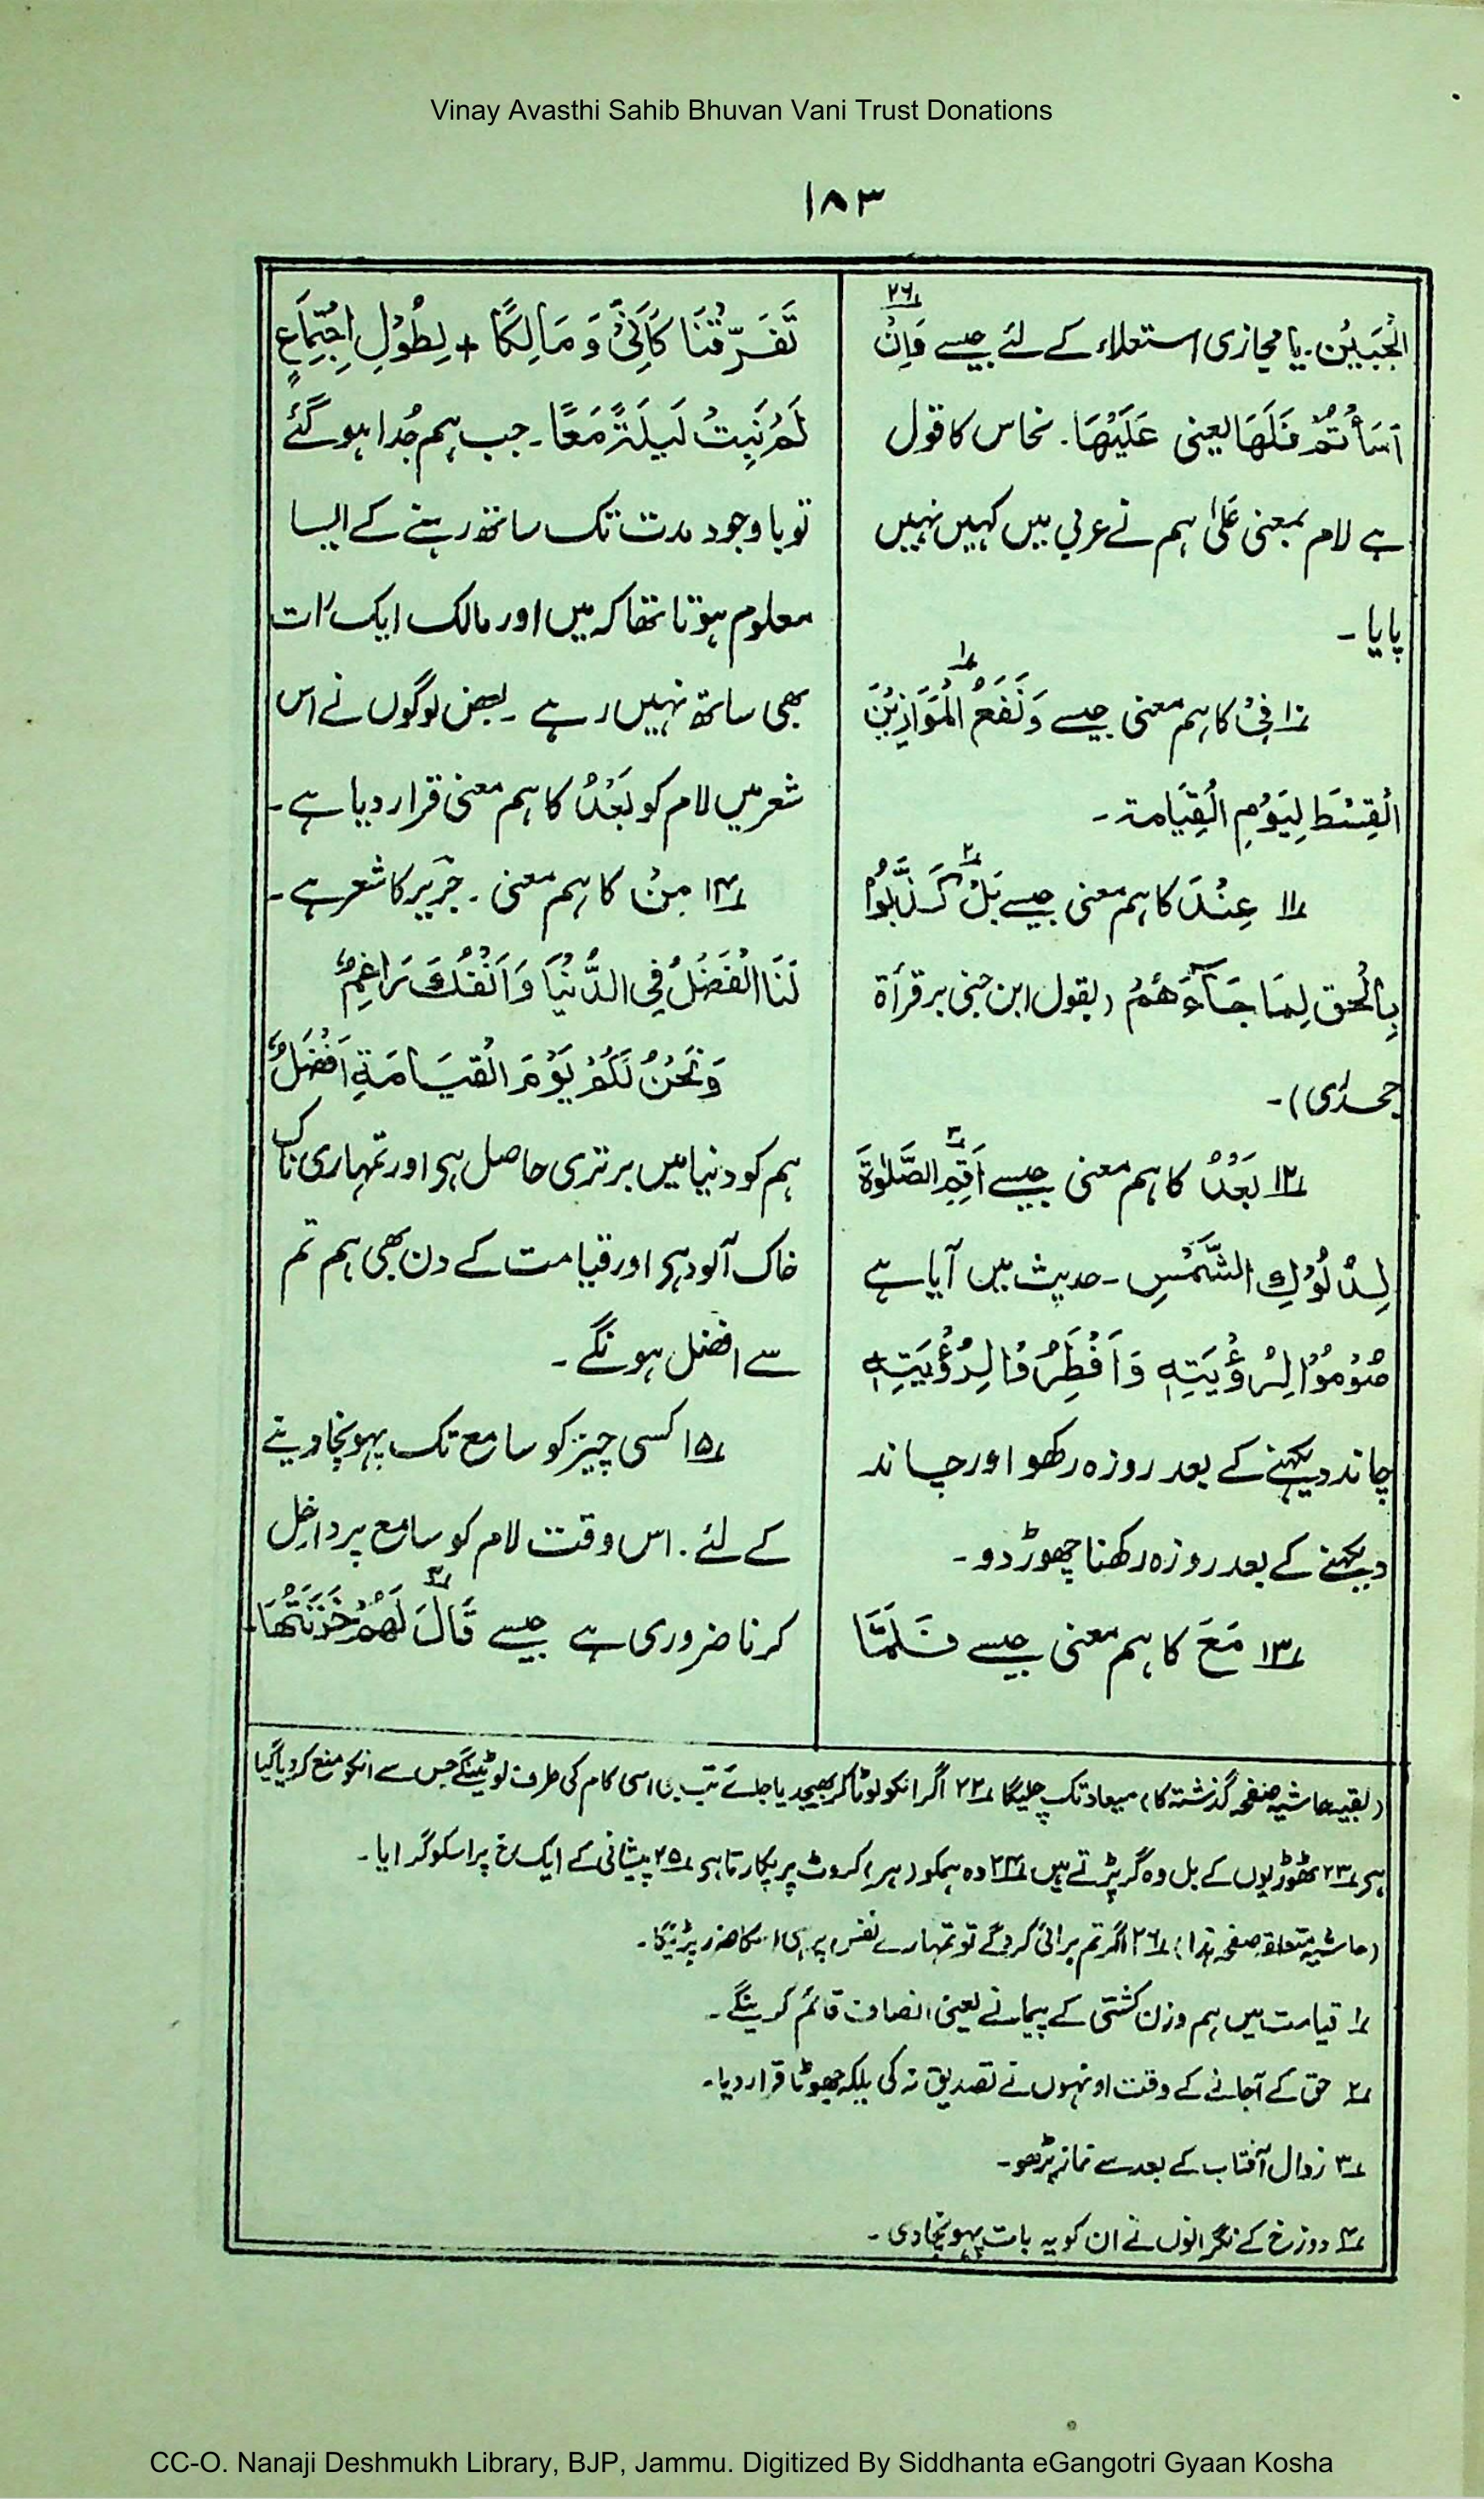 Vinay Avasthi Sahib Bhuvan Vani Trust Donations
۱۸۳
الْجَبِیْن۔ یا مجازی استعلاء کے لئے جیسے فَاِنْ ۲۶؎
اَسَأْتُمْ فَلَهَا یعنی عَلَیْهَا۔ نحاس کا قول
ہے لام بمعنی عَلیٰ ہم نے عربی میں کہیں نہیں
پایا۔
۱۰؎ فِیْ کا ہم معنی جیسے وَنَضَعُ الْمَوَازِیْنَ ۱؎
الْقِسْطَ لِیَوْمِ الْقِیَامة۔
۱۱؎ عِنْدَ کا ہم معنی جیسے بَلْ ۲؎ کَذَّبُوْا
بِالْحق لِمَا جَآءَهُمْ (بقول ابن جنی بر قرأة
جحدری)۔
۱۲؎ بَعْدُ کا ہم معنی جیسے اَقِمِ ۳؎ الصَّلٰوةَ
لِدُلُوْكِ الشَّمْسِ۔ حدیث میں آیا ہے
صُوْمُوْا لِرُؤْیَتِهٖ وَاَفْطِرُوْا لِرُؤْیَتِهٖ
چاند دیکھنے کے بعد روزہ رکھو اور چاند
دیکھنے کے بعد روزہ رکھنا چھوڑ دو۔
۱۳؎ مَعَ کا ہم معنی جیسے فَلَمَّا
تَفَرَّقْنَا کَاَنِّیْ وَمَالِکًا + لِطُوْلِ اجْتِمَاعٍ
لَمْ نَبِتْ لَیْلَةً مَعًا۔ جب ہم جُدا ہو گئے
تو باوجود مدت تک ساتھ رہنے کے ایسا
معلوم ہوتا تھا کہ میں اور مالک ایک رات
بھی ساتھ نہیں رہے۔ بعض لوگوں نے اس
شعر میں لام کو بَعْدُ کا ہم معنی قرار دیا ہے۔
۱۴؎ مِنْ کا ہم معنی۔ جَرِیر کا شعر ہے۔
لَنَا الْفَضْلُ فِی الدُّنْیَا وَاَنْفُكَ رَاغِمٌ
وَنَحْنُ لَکُمْ یَوْمَ الْقِیَامَةِ اَفْضَلُ
ہم کو دنیا میں برتری حاصل ہی اور تمہاری ناک
خاک آلود ہی اور قیامت کے دن بھی ہم تم
سے افضل ہونگے۔
۱۵؎ کسی چیز کو سامع تک پہونچا دینے
کے لئے۔ اس وقت لام کو سامع پر داخل
کرنا ضروری ہے جیسے قَالَ ۴؎ لَهُمْ خَزَنَتُهَا۔
(بقیہ حاشیہ صفحہ گذشتہ کا) میعاد تک چلیگا ۲۲؎ اگر انکو لوٹا کر بھیجدیا جائے تب اسی کام کی طرف لوٹینگے جس سے انکو منع کر دیا گیا
ہی ۲۳؎ ٹھوڑیوں کے بل وہ گر پڑتے ہیں ۲۴؎ وہ ہمکو (ہر) کروٹ پر پکارتا ہی ۲۵؎ پیشانی کے ایک رخ پر اسکو گرایا۔
(حاشیہ متعلقہ صفحہ ہذا) ۲۶؎ اگر تم برائی کروگے تو تمہارے نفس پر ہی اسکا ضرر پڑیگا۔
۱؎ قیامت میں ہم وزن کشتی کے پیمانے یعنی انصاف قائم کرینگے۔
۲؎ حق کے آجانے کے وقت اونہوں نے تصدیق نہ کی بلکہ جھوٹا قرار دیا۔
۳؎ زوال آفتاب کے بعد سے نماز پڑھو۔
۴؎ دوزخ کے نگرانوں نے ان کو یہ بات پہونچا دی۔
CC-O. Nanaji Deshmukh Library, BJP, Jammu. Digitized By Siddhanta eGangotri Gyaan Kosha